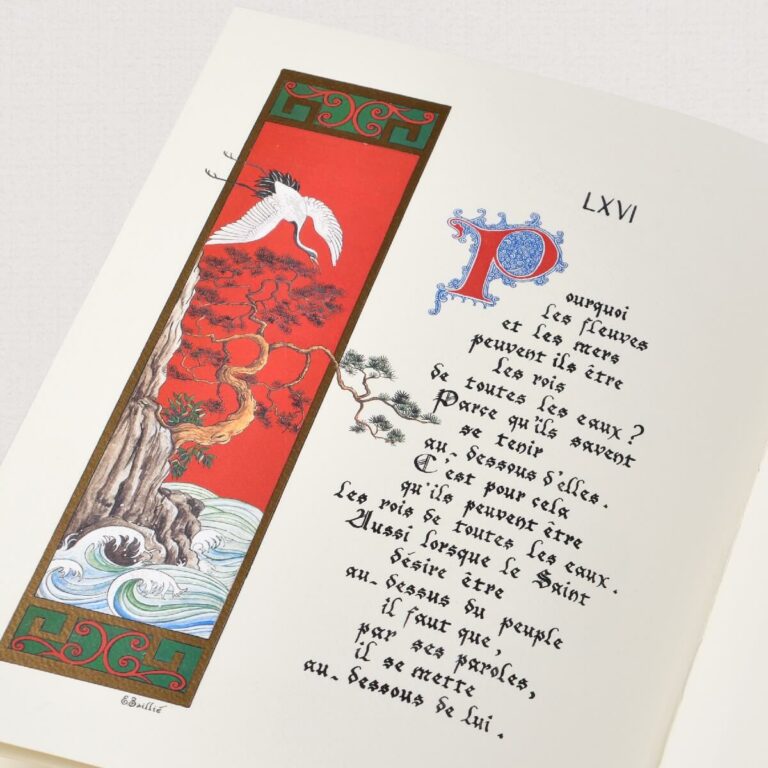 LXVI
Pourquoi
les fleuves
et les mers
peuvent ils être
les rois
de toutes les eaux ?
Parce qu'ils savent
se tenir
au-dessous d'elles.
C'est pour cela
qu'ils peuvent être
les rois de toutes les eaux.
Aussi lorsque le Saint
désire être
au-dessus du peuple
il faut que,
par ses paroles,
il se mette
au-dessous de lui.
E Baillié